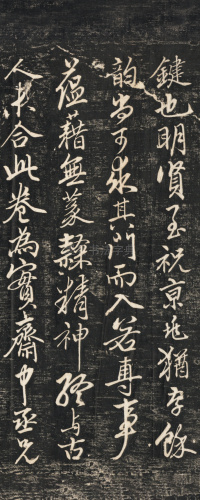 鍵也明賢至祝京兆猶存餘
韵尚可求其門而入若專事
蘊藉無蒙隸精神終與古
人未合此卷為實齋中丞兄